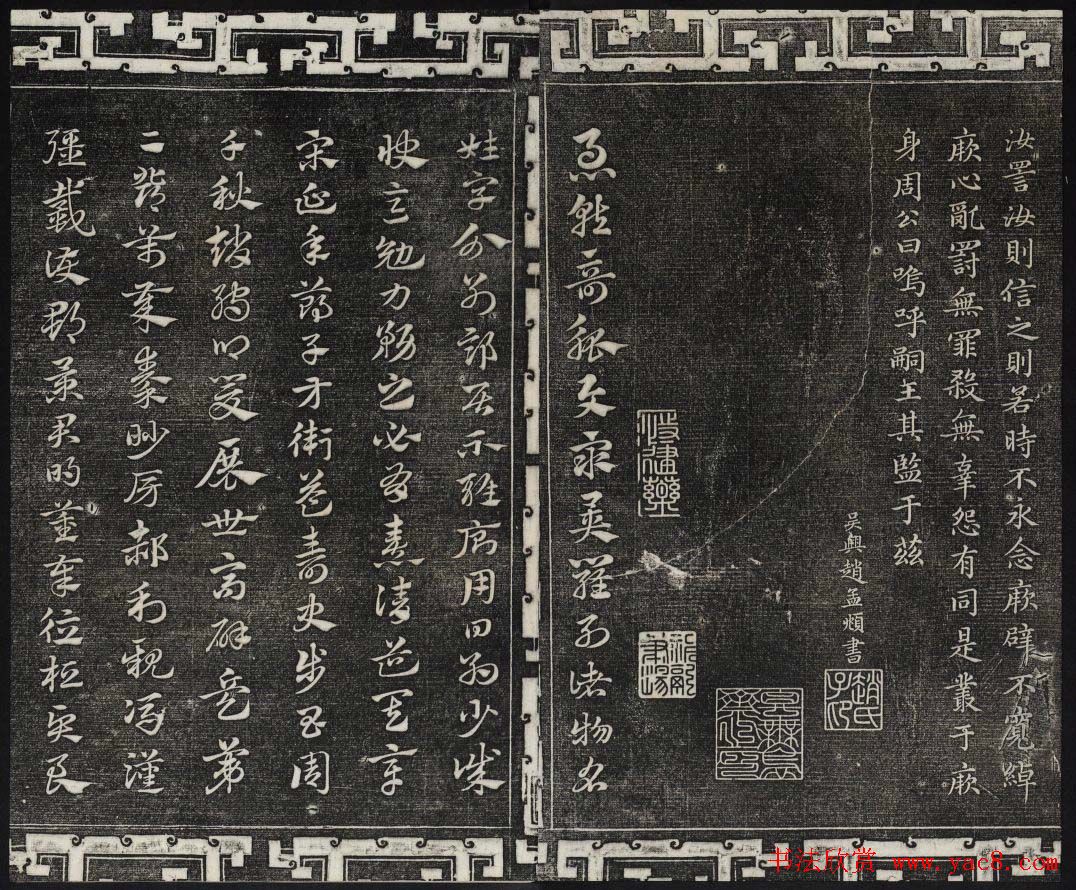 汝詈汝則信之則若時不永念厥辟不寬綽
厥心亂罰無罪殺無辜怨有同是叢于厥
身周公曰嗚呼嗣王其監于茲
吳興趙孟頫書
急就奇觚與眾異羅列諸物名
姓字分別部居不雜廁用日約少誠
快意勉力務之必有憙請道其章
宋延年鄭子方衛益壽史步昌周
千秋趙孺卿爰展世高辟兵第
二鄧萬歲秦眇房郝利親馮漢
彊戴護郡景君明董奉德桓賢良
书法欣赏 www.yac8.com